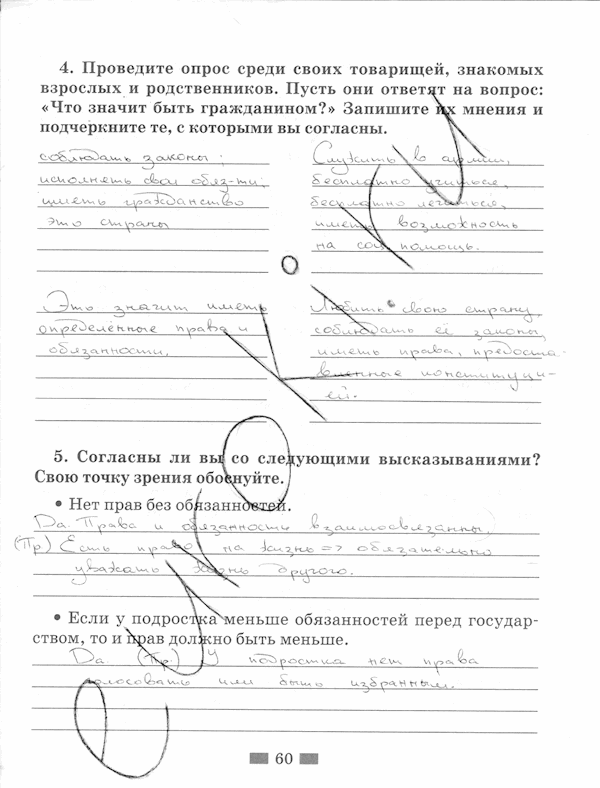 4. Проведите опрос среди своих товарищей, знакомых
взрослых и родственников. Пусть они ответят на вопрос:
«Что значит быть гражданином?» Запишите их мнения и
подчеркните те, с которыми вы согласны.
соблюдать законы;
исполнеть свои обяз-ти;
иметь гражданство
это страны
Служить в армии,
бесплатно учиться,
бесплатно лечиться,
иметь возможность
на соц помощь.
Это значит иметь
определённые права и
обязанности.
Любить свою страну,
соблюдать её законы,
иметь права, предоста-
вленные конституци-
ей.
5. Согласны ли вы со следующими высказываниями?
Свою точку зрения обоснуйте.
• Нет прав без обязанностей.
Да. Права и обязанности взаимосвязанны.
(Пр) Есть право на жизнь => обязательно
уважать жизнь другого.
• Если у подростка меньше обязанностей перед государ-
ством, то и прав должно быть меньше.
Да. (Пр.) У подростка нет права
голосовать или быть избранным.
60